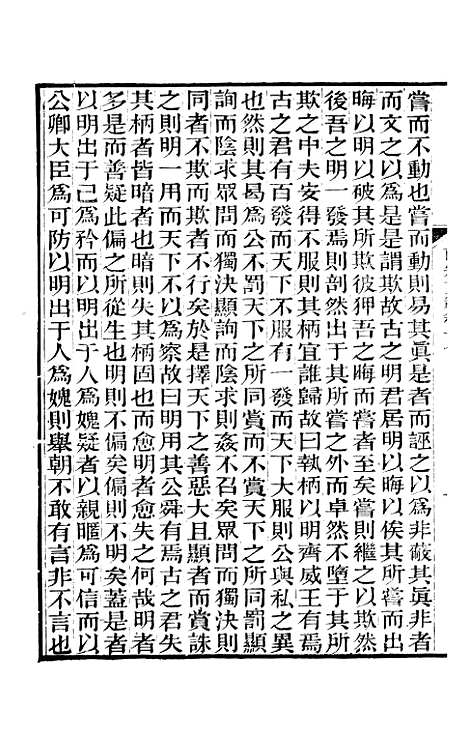 嘗而不動也嘗而動則易其眞是者而誣之以爲非蔽其眞非者
而文之以爲是是謂欺故古之明君居明以晦以俟其所嘗而出
晦以明以破其所欺彼狎吾之晦而嘗者至矣嘗則繼之以欺然
後吾之明一發焉則剖然出于其所嘗之外而卓然不墮于其所
欺之中夫安得不服則其柄宜誰歸故曰執柄以明齊威王有焉
古之君有百發而天下不服有一發而天下大服則公與私之異
也然則其曷爲公不罰天下之所同賞而不賞天下之所同罰顯
詢而陰求眾問而獨決顯詢而陰求則姦不召矣眾問而獨決則
同者不欺而欺者不行矣於是擇天下之善惡大且顯者而賞誅
之則明一用而天下不以爲察故曰明用其公舜有焉古之君失
其柄者皆暗者也暗則失其柄固也而愈明者愈失之何哉明者
多是而善疑此偏之所從生也明則不偏矣偏則不明矣蓋是者
以明出于己爲矜而以明出于人爲媿疑者以親暱爲可信而以
公卿大臣爲可防以明出于人爲媿則舉朝不敢有言非不言也